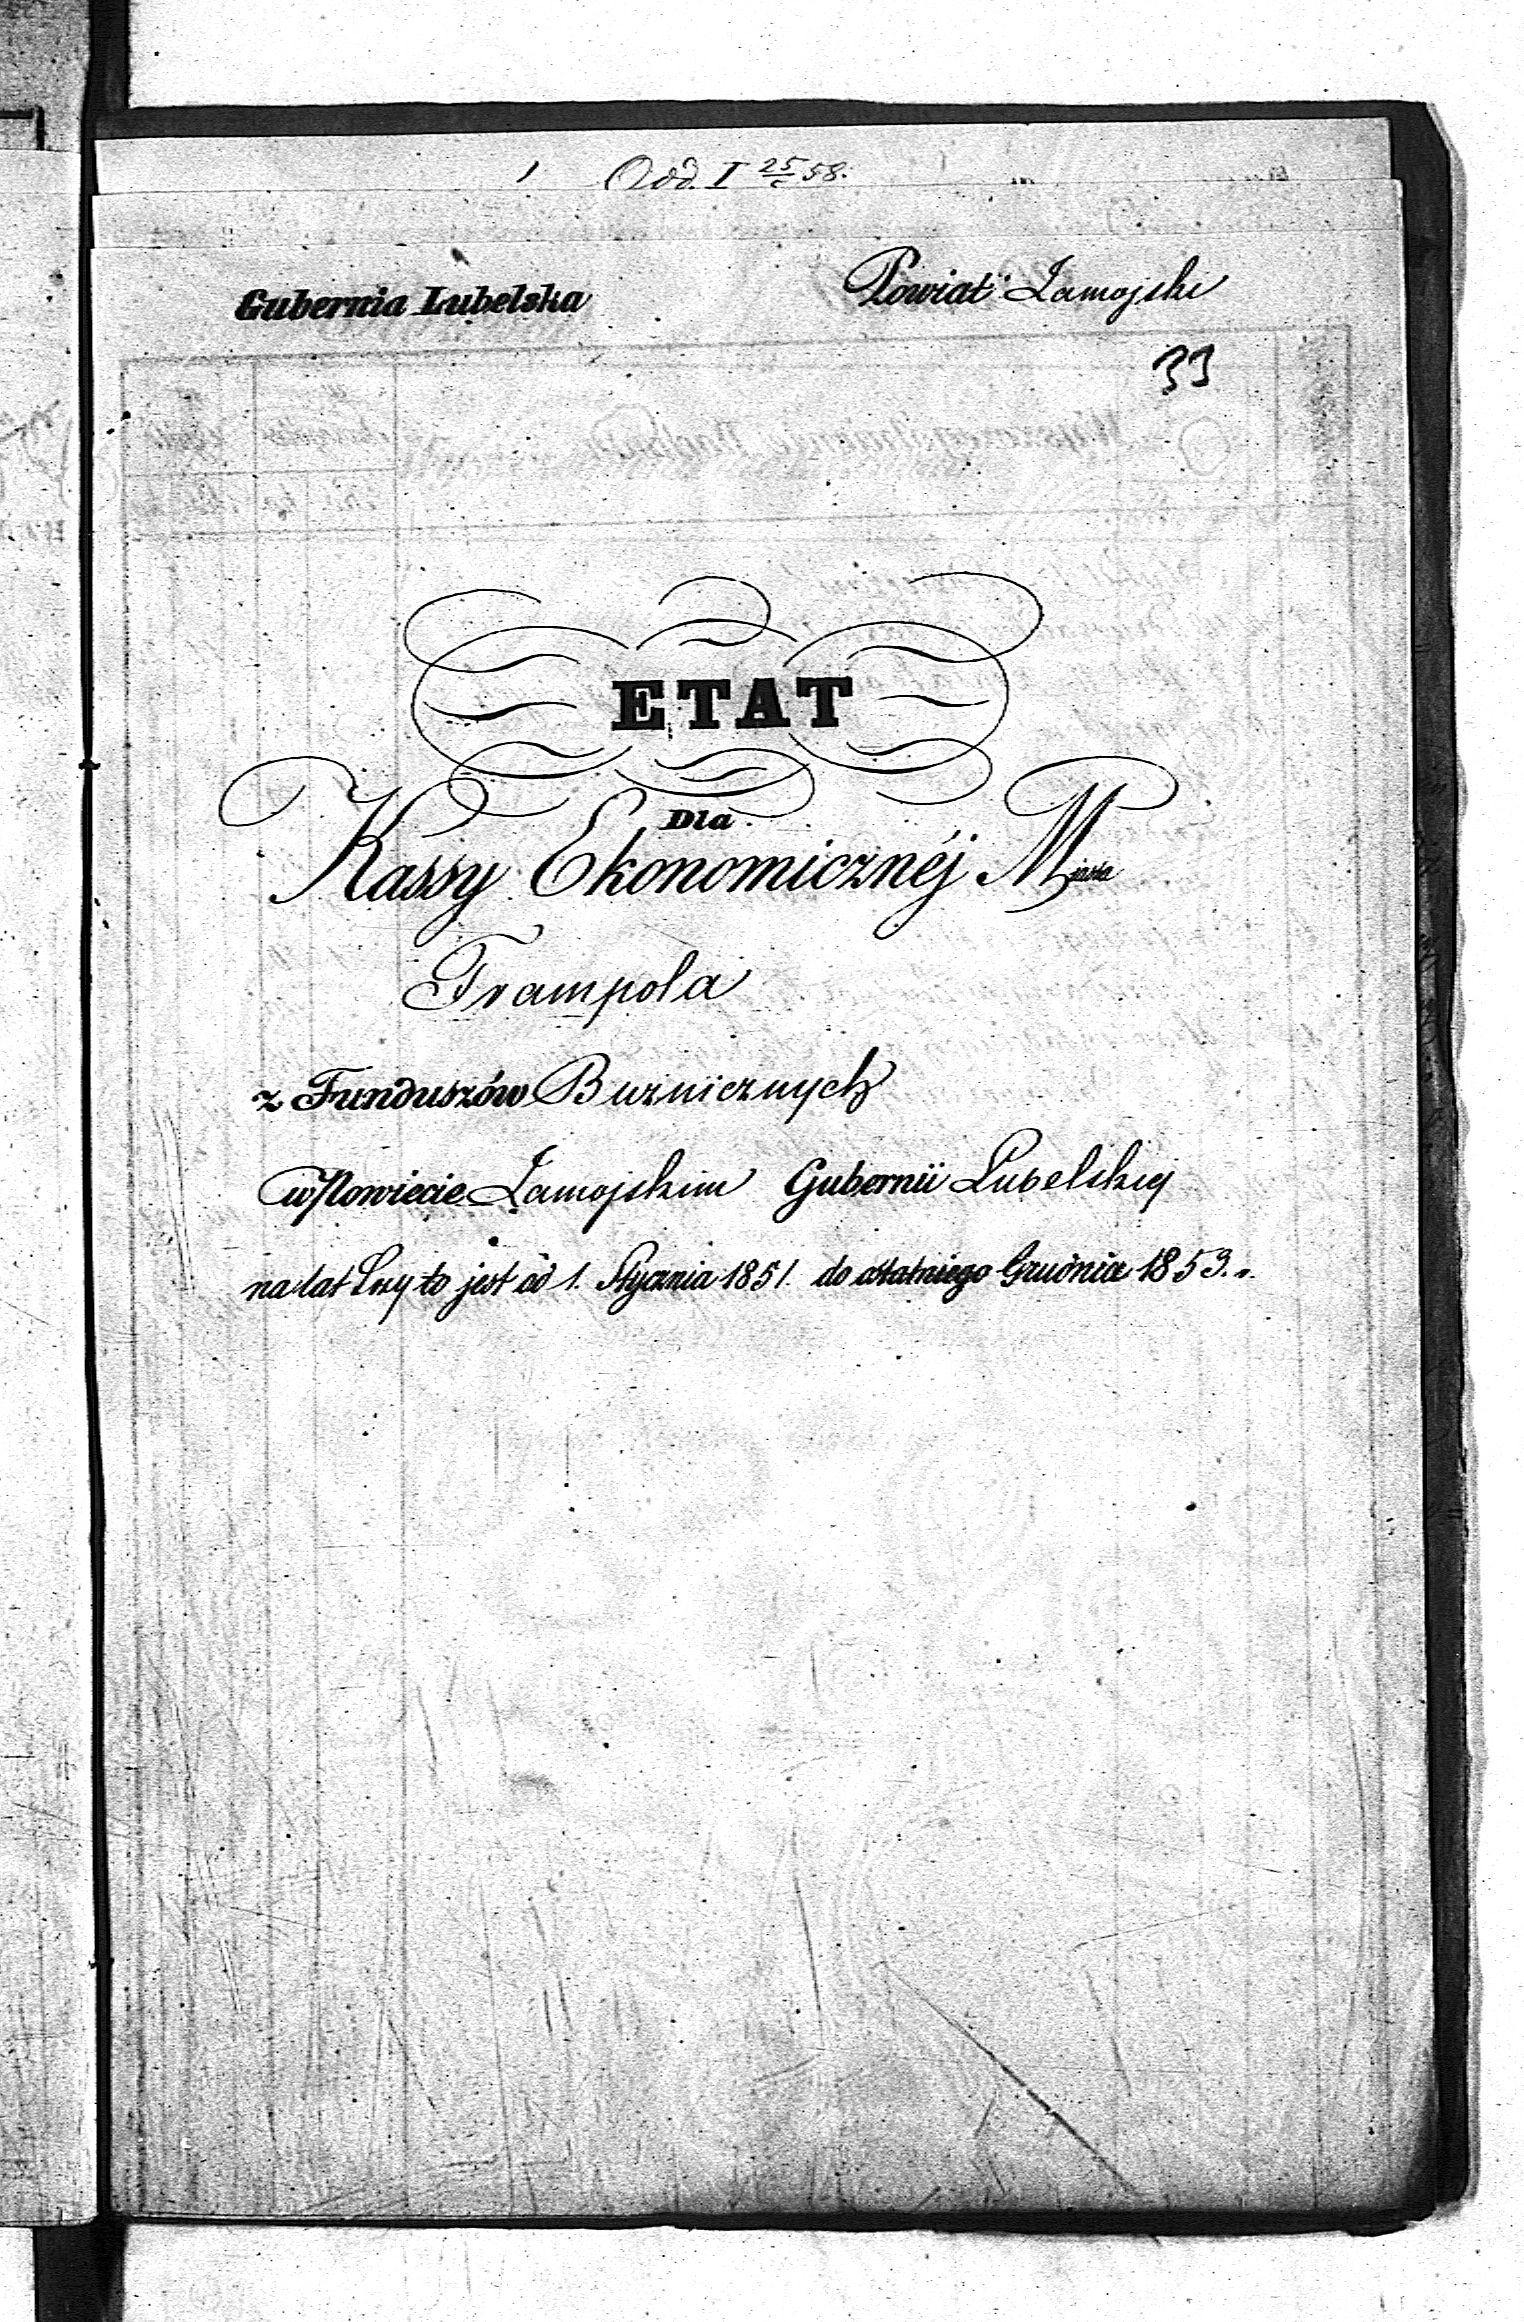 Odd. I 25/c 58.
Gubernia Lubelska Powiat Zamojski
33
ETAT
Dla
Kassy Ekonomicznéj Miasta
Frampola
z Funduszów Buznicznych
w Powiecie Zamojskim Gubernii Lubelskiej
na lat trzy to jest od 1. Stycznia 1851. do ostatniego Grudnia 1853.